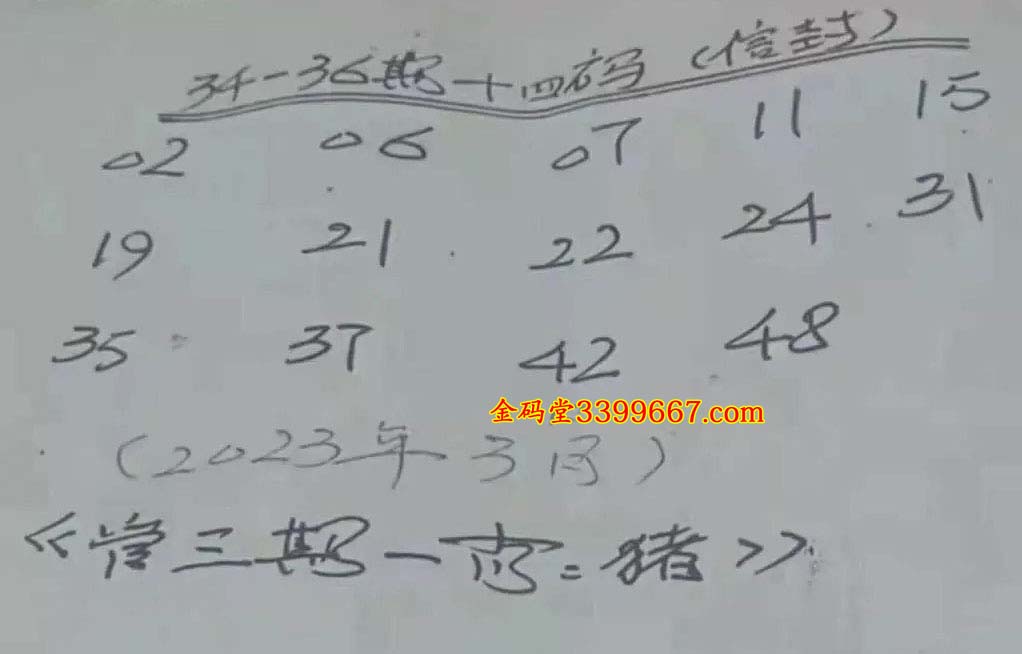 34-36期十四码（信封）
02 06 07 11 15
19 21 22 24 31
35 37 42 48
金码堂3399667.com
（2023年3月）
《管三期一肖=猪》